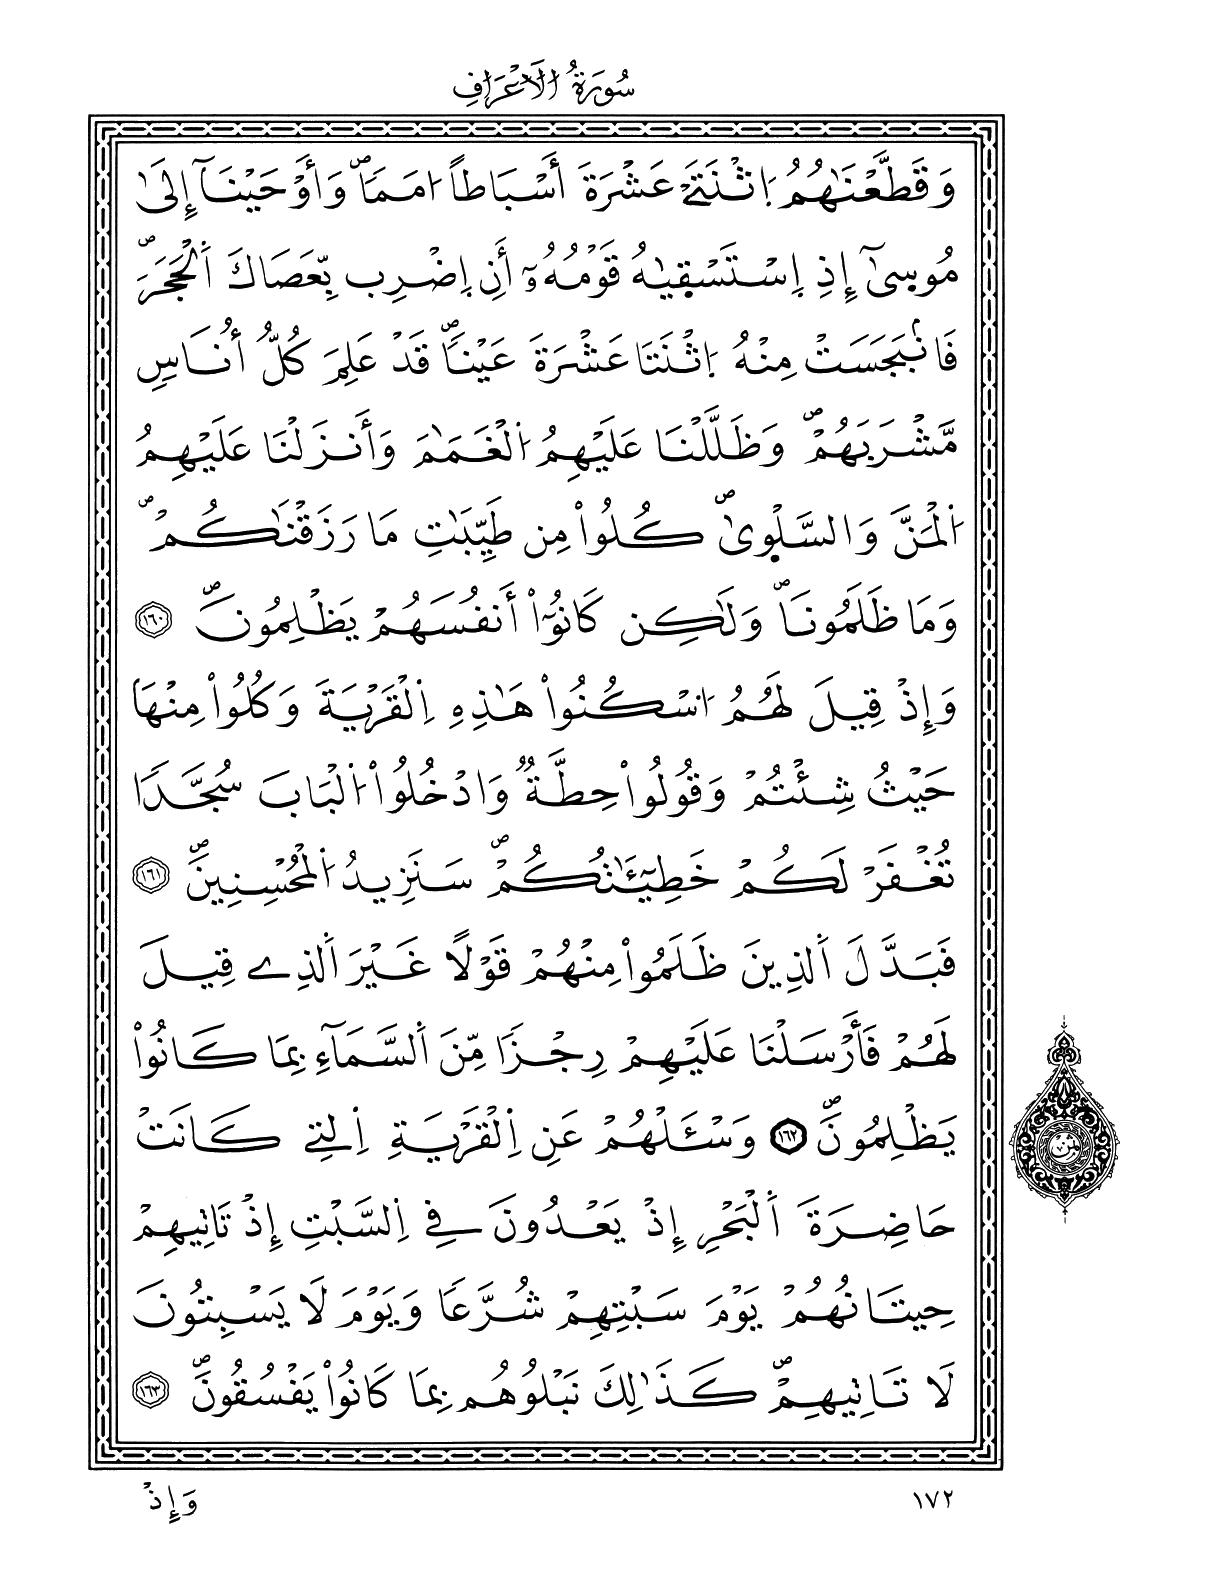 سُورَةُ اُلَاعْرَافِ
وَقَطَّعْنَٰهُمُ اُ۪ثْنَتَےْ عَشْرَةَ أَسْبَاطاً اُمَماٗۖ وَأَوْحَيْنَآ إِلَىٰ
مُوس۪ىٰٓ إِذِ اِ۪سْتَسْق۪يٰهُ قَوْمُهُۥٓ أَنِ اِ۪ضْرِب بِّعَصَاكَ اَ۬لْحَجَرَۖ
فَانۢبَجَسَتْ مِنْهُ اُ۪ثْنَتَا عَشْرَةَ عَيْناٗۖ قَدْ عَلِمَ كُلُّ أُنَاسٖ
مَّشْرَبَهُمْۖ وَظَلَّلْنَا عَلَيْهِمُ اُ۬لْغَمَٰمَ وَأَنزَلْنَا عَلَيْهِمُ
اُ۬لْمَنَّ وَالسَّلْو۪ىٰۖ كُلُواْ مِن طَيِّبَٰتِ مَا رَزَقْنَٰكُمْۖ
وَمَا ظَلَمُونَاۖ وَلَٰكِن كَانُوٓاْ أَنفُسَهُمْ يَظْلِمُونَۖ ١٦٠
وَإِذْ قِيلَ لَهُمُ اُ۟سْكُنُواْ هَٰذِهِ اِ۬لْقَرْيَةَ وَكُلُواْ مِنْهَا
حَيْثُ شِئْتُمْ وَقُولُواْ حِطَّةٞ وَادْخُلُواْ اُ۬لْبَابَ سُجَّداٗ
تُغْفَرْ لَكُمْ خَطِيٓـَٰٔتُكُمْۖ سَنَزِيدُ اُ۬لْمُحْسِنِينَۖ ١٦١
فَبَدَّلَ اَ۬لذِينَ ظَلَمُواْ مِنْهُمْ قَوْلاً غَيْرَ اَ۬لذِے قِيلَ
لَهُمْ فَأَرْسَلْنَا عَلَيْهِمْ رِجْزاٗ مِّنَ اَ۬لسَّمَآءِ بِمَا كَانُواْ
يَظْلِمُونَۖ ١٦٢ وَسْـَٔلْهُمْ عَنِ اِ۬لْقَرْيَةِ اِ۬لتِے كَانَتْ
حَاضِرَةَ اَ۬لْبَحْرِ إِذْ يَعْدُونَ فِے اِ۬لسَّبْتِ إِذْ تَاتِيهِمْ
حِيتَانُهُمْ يَوْمَ سَبْتِهِمْ شُرَّعاٗ وَيَوْمَ لَا يَسْبِتُونَ
لَا تَاتِيهِمْۖ كَذَٰلِكَ نَبْلُوهُم بِمَا كَانُواْ يَفْسُقُونَۖ ١٦٣
ثمن
١٧٢
وَإِذْ